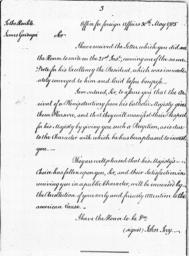 3
Office for foreign Affairs 30th. May 1785
Sir
I have received the Letter which you did me
the Honor to write on the 21st. Inst. covering one of the same
Date for his Excellency the President, which was immediate-
ly conveyed to him and laid before Congress.
I am instructed to assure you that the
arrival of a Plenipotentiary from his Catholic Majesty gives
them Pleasure, and that they will manifest their respect
for his Majesty by giving you such a Reception, as is due
to the Character with which he has been pleased to invest
you.
They are well pleased that his Majesty's
Choice has fallen upon you, Sir, and their Satisfaction in
receiving you in a public Character, will be increased by
the Recollection of your early and friendly Attention to the
american Cause.
I have the Honor to be &c.
(signed) John Jay.